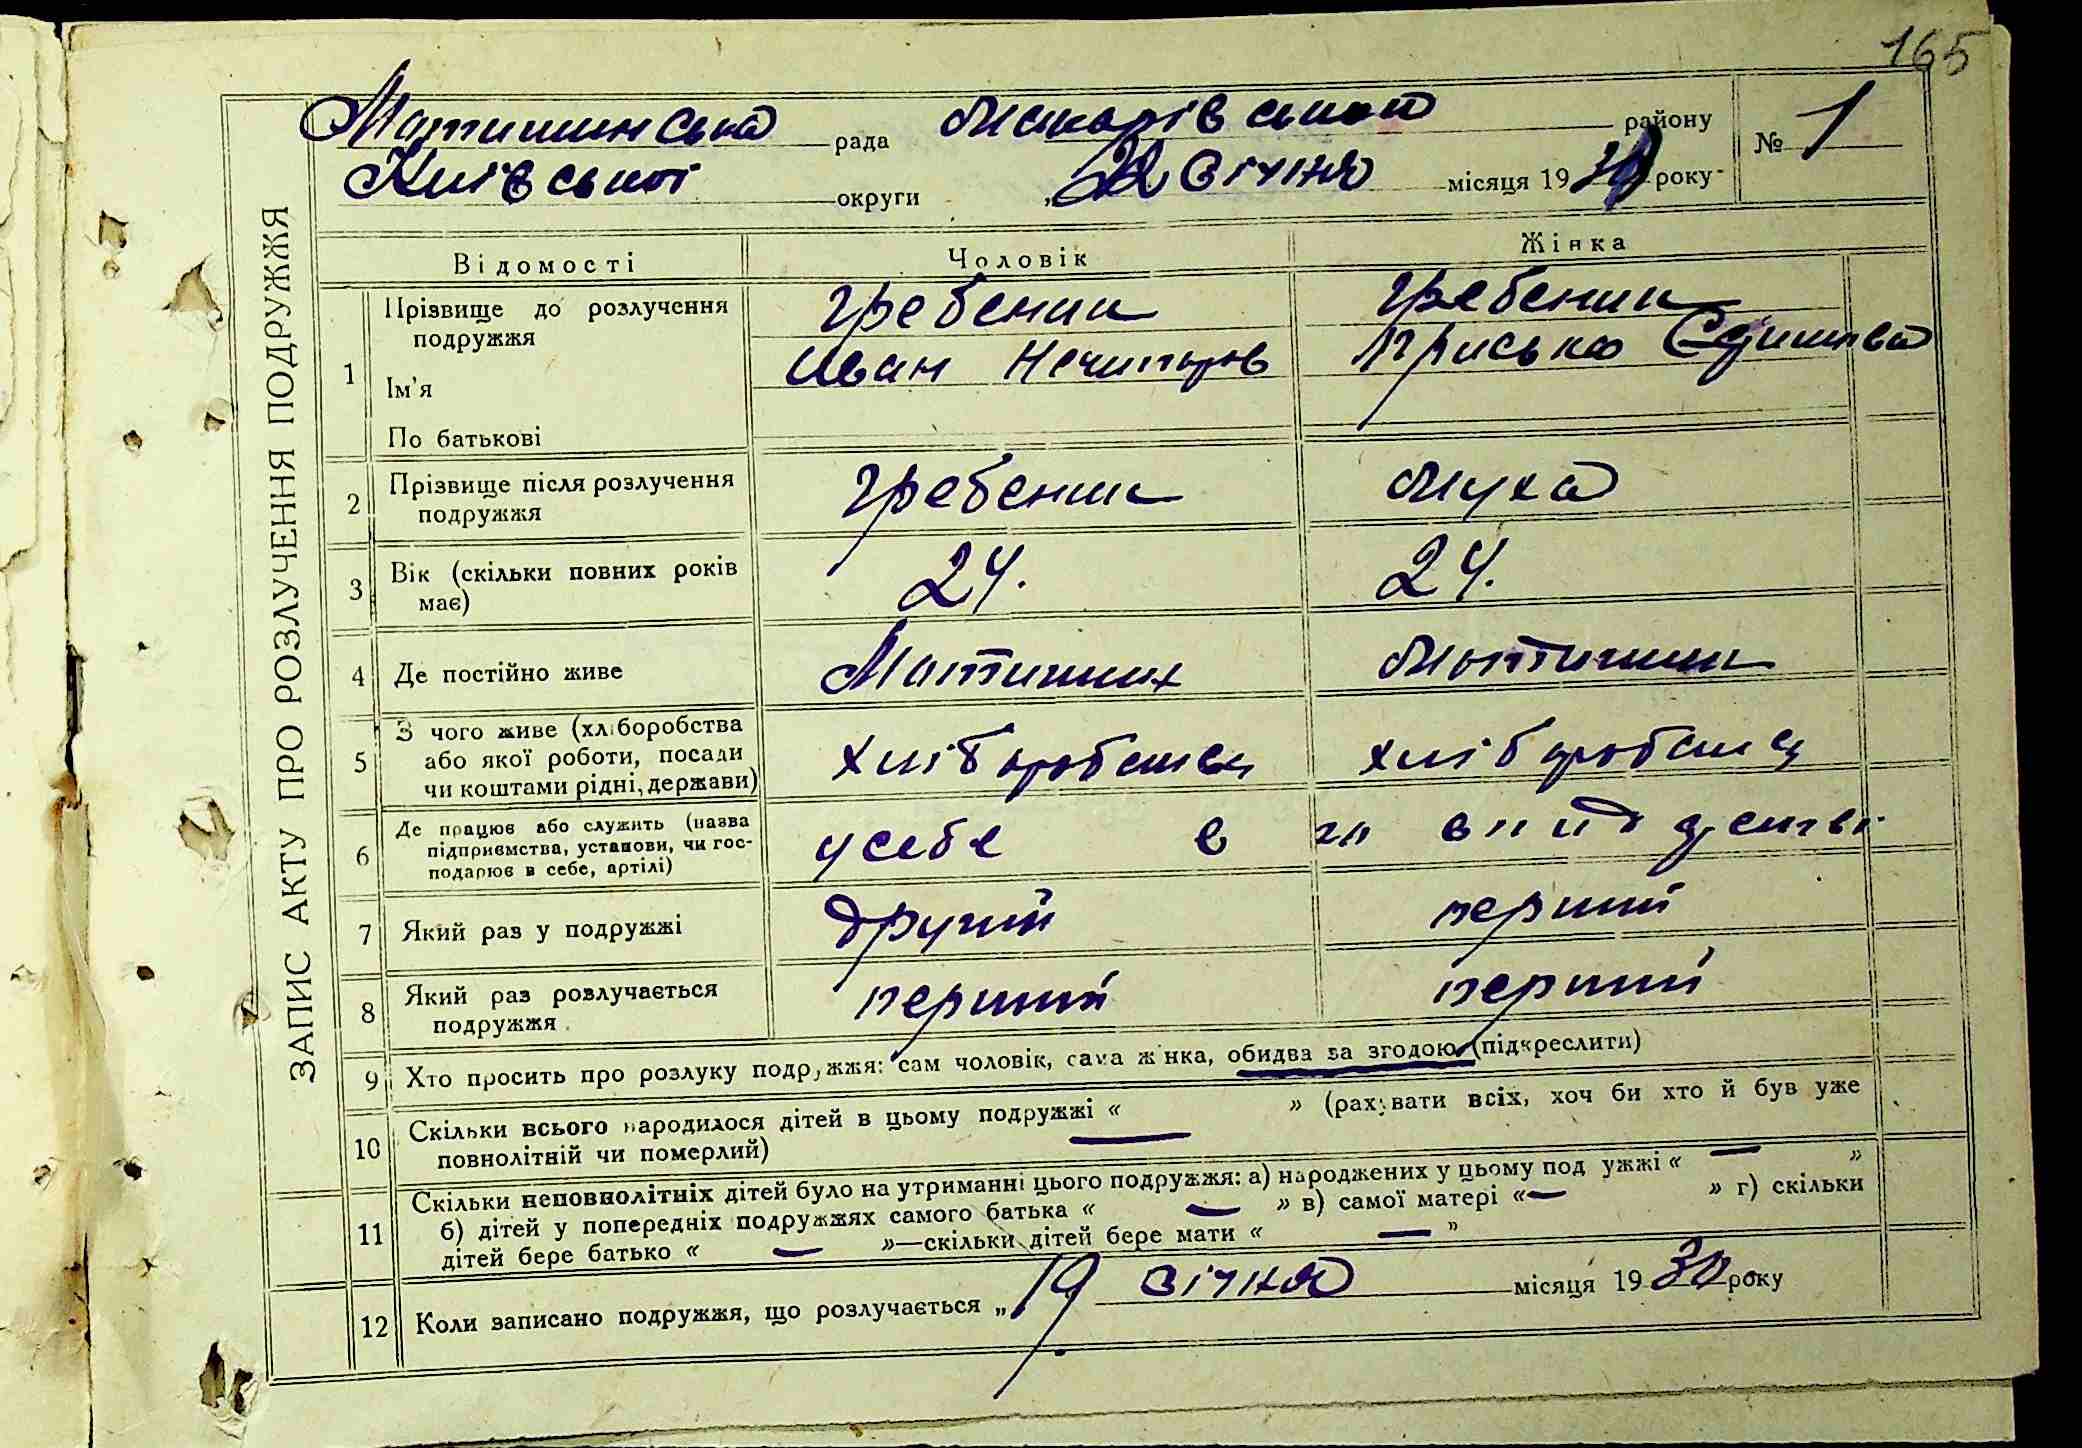 165
Мотижинська рада Макарівського району № 1
Київської округи „22 Січня місяця 1930 року
ЗАПИС АКТУ ПРО РОЗЛУЧЕННЯ ПОДРУЖЖЯ
Відомості Чоловік Жінка
1 Прізвище до розлучення Гребеник Гребеник
подружжя
Ім'я Иван Нечипоров Приська
По батькові
2 Прізвище після розлучення Гребеник Муха
подружжя
3 Вік (скільки повних років 24. 24.
має)
4 Де постійно живе Мотижин Мотижин
5 З чого живе (хліборобства
або якої роботи, посади хліборобства хліборобства
чи коштами рідні, держави)
6 Де працює або служить (назва
підприємства, установи, чи гос- у себе в
подарює в себе, артілі)
7 Який раз у подружжі другий перший
8 Який раз розлучається перший перший
подружжя
9 Хто просить про розлуку подружжя: сам чоловік, сама жінка, обидва за згодою (підкреслити)
10 Скільки всього народилося дітей в цьому подружжі « — » (рахувати всіх, хоч би хто й був уже
повнолітній чи померлий)
11 Скільки неповнолітніх дітей було на утриманні цього подружжя: а) народжених у цьому подружжі « — »
б) дітей у попередніх подружжях самого батька « — » в) самої матері « — » г) скільки
дітей бере батько « — »—скільки дітей бере мати « — »
12 Коли записано подружжя, що розлучається „19 Січня місяця 1930 року